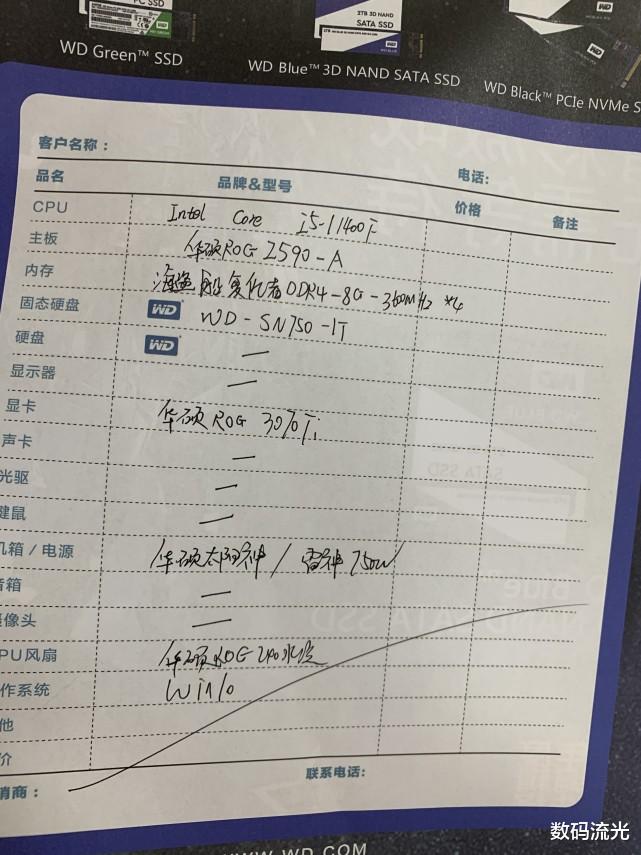 PC SSD
2TB 3D NAND
SATA SSD
WD
WD Green™ SSD
WD Blue™ 3D NAND SATA SSD
WD Black™ PCIe NVMe S
客户名称：
电话：
品名 品牌&型号 价格 备注
CPU Intel Core i5-11400F
主板 华硕ROG Z590-A
内存 海盗船 复仇者DDR4-8G-3600MHz *4
固态硬盘 WD WD-SN750-1T
硬盘 WD —
显示器 —
显卡 华硕ROG 3070Ti
声卡 —
光驱 —
键鼠 —
机箱 / 电源 华硕太阳神 / 雷神750W
音箱 —
摄像头 —
CPU风扇 华硕ROG 240水冷
作系统 Win10
他
价
销商：
联系电话：
WWW.WD.COM
数码流光